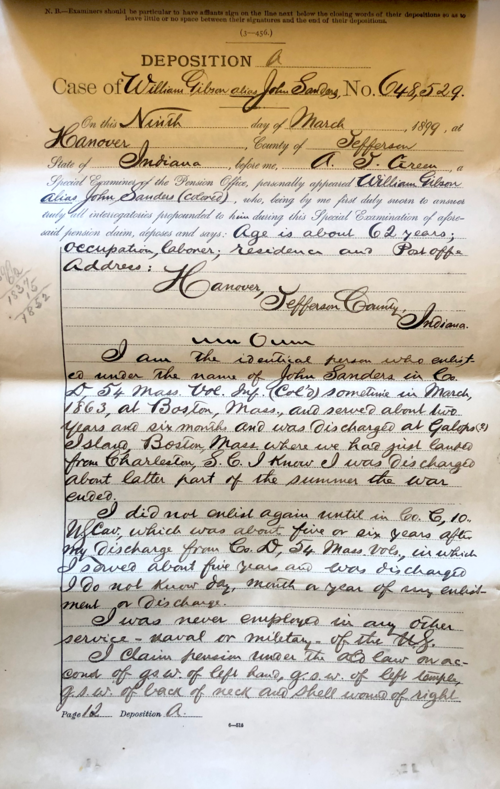 N. B.—Examiners should be particular to have affiants sign on the line next below the closing words of their depositions so as to
leave little or no space between their signatures and the end of their depositions.
(3—456.)
DEPOSITION A
Case of William Gibson alias John Sanders, No. 648,529.
On this Ninth day of March, 1899, at
Hanover, County of Jefferson
State of Indiana, before me, A. T. Green, a
Special Examiner of the Pension Office, personally appeared William Gibson
alias John Sanders (colored), who, being by me first duly sworn to answer
truly all interrogatories propounded to him during this Special Examination of afore-
said pension claim, deposes and says: Age is about 62 years;
occupation, laborer; residence and Post office
Address:
Hanover,
Jefferson County,
Indiana.
I am the identical person who enlist
ed under the name of John Sanders in Co.
D, 54 Mass. Vol. Inf. (Col'd) sometime in March,
1863, at Boston, Mass., and served about two
years and six months and was discharged at Galops(?)
Island, Boston, Mass. where we had just landed
from Charleston, S. C. I know I was discharged
about latter part of the summer the war
ended.
I did not enlist again until in Co. C, 10-
US Cav, which was about five or six years after
my discharge from Co. D, 54 Mass. Vols, in which
I served about five years and was discharged
I do not know day, month or year of my enlist-
ment or discharge.
I was never employed in any other
service - naval or military - of the U.S.
I claim pension under the old law on ac-
count of gsw. of left hand, g.s.w. of left temple,
g.s.w. of back of neck and shell wound of right
Page 12 Deposition A.